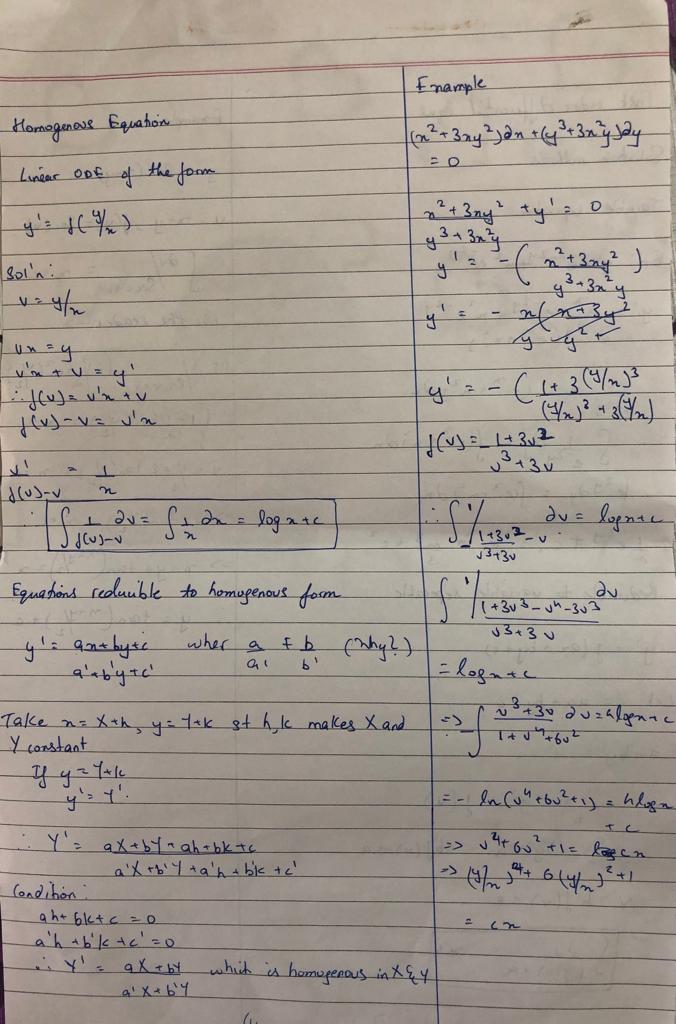 Homogenous Equation
Linear ODE of the form
y' = f(y/x)
Sol'n:
v = y/x
vx = y
v'x + v = y'
∴ f(v) = v'x + v
f(v) - v = v'x
v'/f(v)-v = 1/x
∴ ∫ 1/f(v)-v dv = ∫ 1/x dx = log x + c
Equations reducible to homogenous form
y' = ax+by+c / a'+b'y+c' wher a/a' ≠ b/b' (why?)
Take x = X+h, y = Y+k st h,k makes X and
Y constant
If y = Y+k
y' = Y'.
∴ Y' = aX+bY+ah+bk+c / a'X+b'Y+a'h+b'k+c'
Condition:
ah+bk+c = 0
a'h+b'k+c' = 0
∴ Y' = aX+bY / a'X+b'Y which is homogenous in X & Y
Example
(x²+3xy²)dx+(y³+3x²y)dy
= 0
x²+3xy² / y³+3x²y + y' = 0
y' = -(x²+3xy² / y³+3x²y)
y' = - x(x+3y² / y y²+
y' = -(1+3(y/x)³ / (y/x)³+3(y/x)
f(v) = -1+3v² / v³+3v
∴ ∫ 1/ 1+3v²/v³+3v - v dv = log x+c
∫ 1/ 1+3v³-v⁴-3v³ / v³+3v dv
= log x+c
=> -∫ v³+3v / 1+v⁴+6v² dv = 4log x+c
= - ln(v⁴+6v²+1) = 4log x
+ c
=> v⁴+6v²+1 = cx
=> (y/x)⁴+6(y/x)²+1
= cx